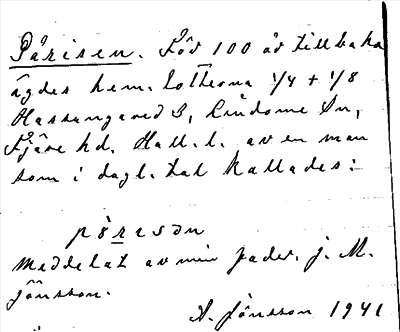 Pärisen. För 100 år tillbaka
ägdes hem. lotterna 1/4 + 1/8
Hassungared 3, Lindome sn,
Fjäre hd. Hall. l. av en man
som i dagl. tal kallades:
pä̀resən
Meddelat av min fader, J. M.
Jönsson.
A. Jönsson 1941